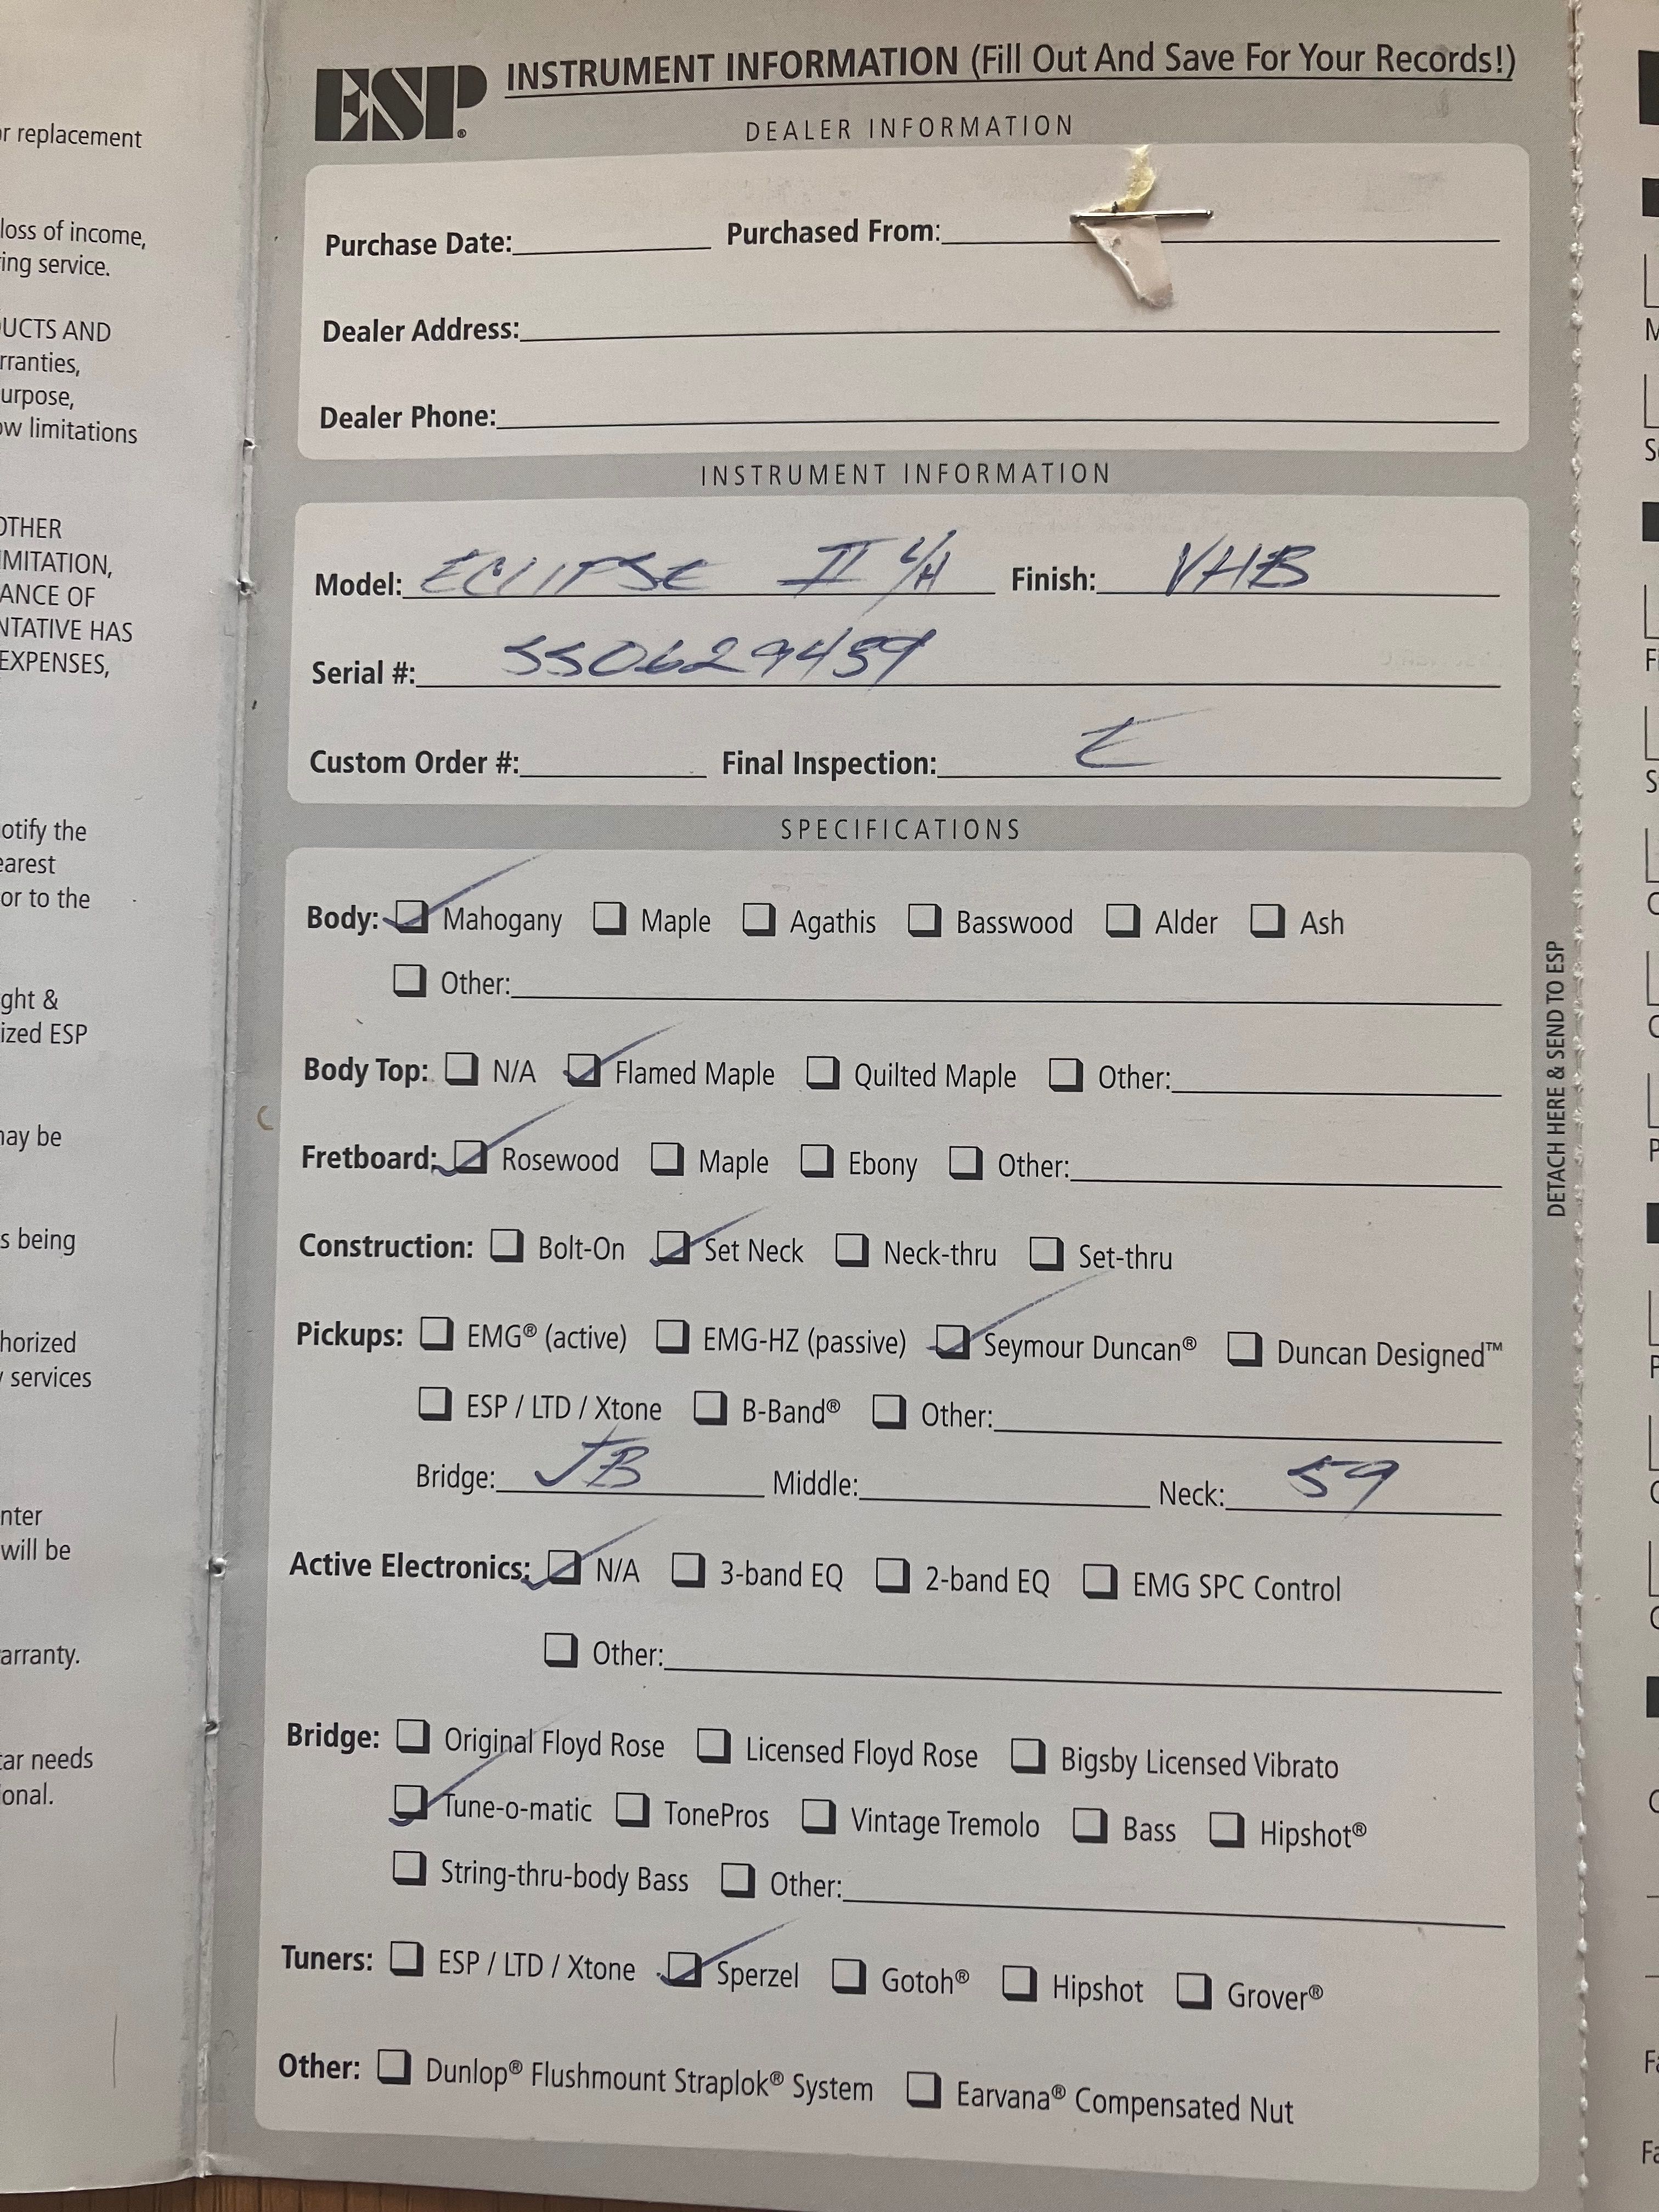 or replacement
loss of income,
ring service.
UCTS AND
rranties,
urpose,
ow limitations
OTHER
IMITATION,
ANCE OF
NTATIVE HAS
EXPENSES,
otify the
earest
or to the
ght &
ized ESP
may be
s being
horized
services
nter
will be
arranty.
tar needs
ional.
ESP® INSTRUMENT INFORMATION (Fill Out And Save For Your Records!)
DEALER INFORMATION
Purchase Date: Purchased From:
Dealer Address:
Dealer Phone:
INSTRUMENT INFORMATION
Model: ECLIPSE II L/H Finish: VHB
Serial #: SS0629459
Custom Order #: Final Inspection:
SPECIFICATIONS
Body: Mahogany Maple Agathis Basswood Alder Ash
Other:
Body Top: N/A Flamed Maple Quilted Maple Other:
Fretboard: Rosewood Maple Ebony Other:
Construction: Bolt-On Set Neck Neck-thru Set-thru
Pickups: EMG® (active) EMG-HZ (passive) Seymour Duncan® Duncan Designed™
ESP / LTD / Xtone B-Band® Other:
Bridge: JB Middle: Neck: 59
Active Electronics: N/A 3-band EQ 2-band EQ EMG SPC Control
Other:
Bridge: Original Floyd Rose Licensed Floyd Rose Bigsby Licensed Vibrato
Tune-o-matic TonePros Vintage Tremolo Bass Hipshot®
String-thru-body Bass Other:
Tuners: ESP / LTD / Xtone Sperzel Gotoh® Hipshot Grover®
Other: Dunlop® Flushmount Straplok® System Earvana® Compensated Nut
DETACH HERE & SEND TO ESP